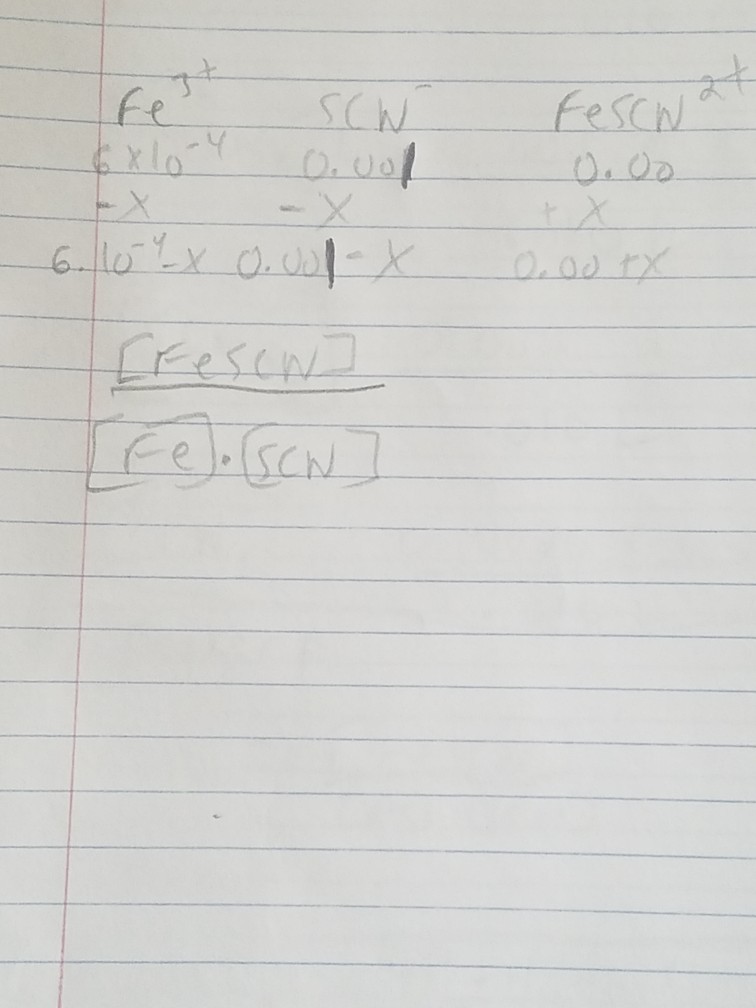 Fe³⁺ SCN⁻ FeSCN²⁺
6 x 10⁻⁴ 0.001 0.00
-x -x +x
6.10⁻⁴-x 0.001-x 0.00+x
[FeSCN]
[Fe].[SCN]